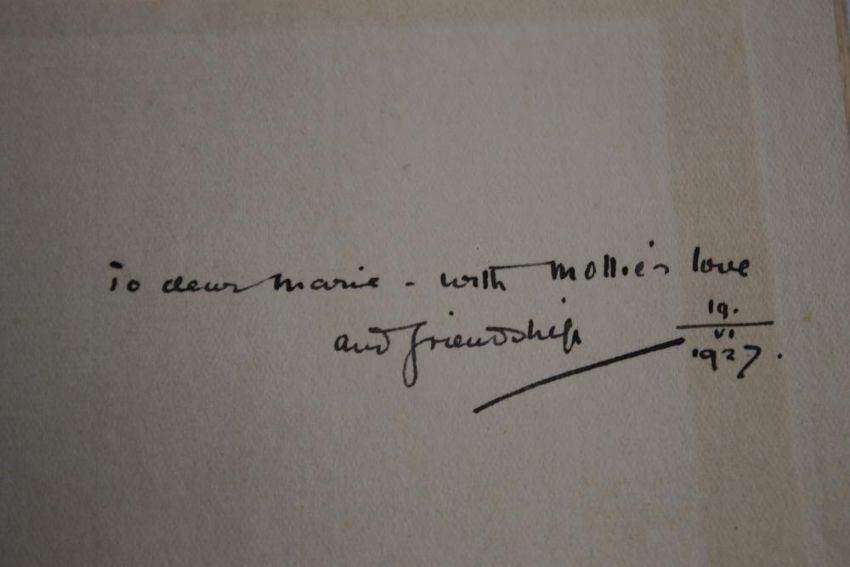 To dear Marie - with Mollie's love
and friendship
19.
VI
1927.